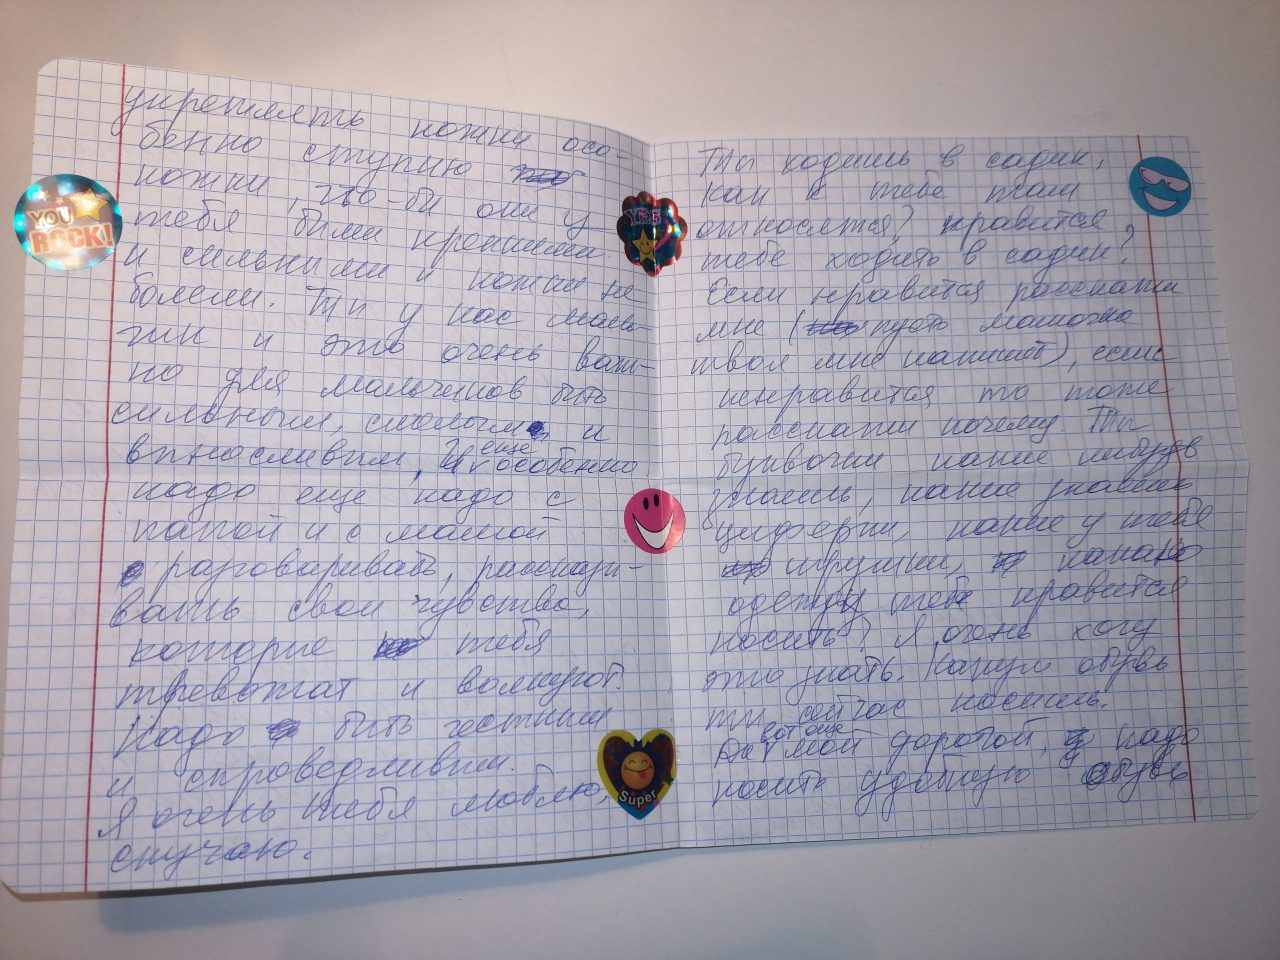 укреплять ножки осо-
бенно ступню
ножки, что-бы они у
тебя были крепкими
и сильными и ножки не
болели. Ты у нас маль-
чик и это оченьваж-
но для мальчиков быть
сильным, смелым и
выносливым, И еще особенно
надо еще надо с
папой и с мамой
разговаривать, рассказы-
вать свои чувства,
которые тебя
тревожат и волнуют.
Надо быть честным
и справедливым.
Я очень тебя люблю,
скучаю.
Ты ходишь в садик,
как к тебе там
относятся? нравится
тебе ходить в садик?
Если нравится расскажи
мне (пусть мамочка
твоя мне напишет), если
ненравится то тоже
расскажи почему. Ты
буквочки какие нибудь
знаешь, какие знаешь
циферки, какие у тебя
игрушки, какую
одежду тебе нравится
носить? Я очень хочу
это знать. Какую обувь
ты сейчас носишь.
вот еще мой дорогой, надо
носить удобную обувь
YOU ROCK!
YES
Super